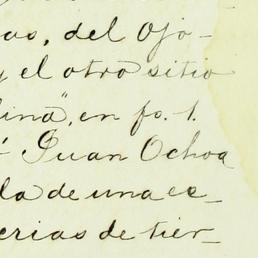 os, del Ojo-
y el otro sitio
lina", en fo. 1.
Juan Ochoa
da de una es-
erias de tier-